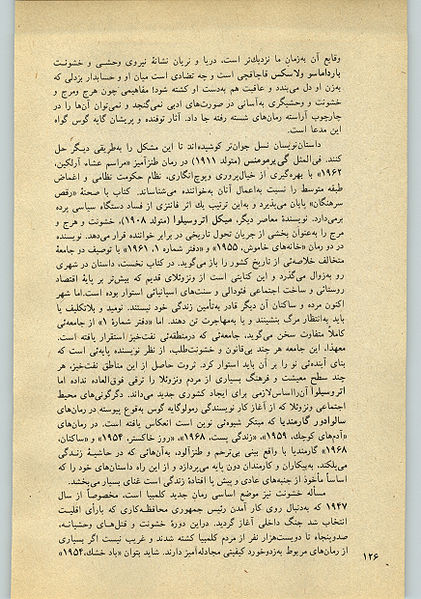 وقایع آن به‌زمان ما نزدیك‌تر است، دریا و نریان نشانهٔ نیروی وحشـی و خشونت
بارداماسو ولاسکس قاچاقچی است و چه تضادی است میان او و حسابدار بزدلی که
به‌زن او دل می‌بندد و عاقبت هم به‌دست او کشته شود! مفاهیمی چون هرج ومرج و
خشونت و وحشیگری به‌آسانی در صورت‌های ادبی نمی‌گنجد و نمی‌توان آن‌ها را در
چارچوب آراسته رمان‌های شسته رفته جا داد. آثار توفنده و پریشان گایه گوس گواه
این مدعا است.
داستان‌نویسان نسل جوان‌تر کوشیده‌اند تا این مشکل را به‌طریقی دیگر حل
کنند. فی‌المثل گی‌یرمومنس (متولد ۱۹۱۱) در رمان طنزآمیز «مراسم عشاء آرلکین،
۱۹۶۲» با بهره‌گیری از خیال‌پروری و پوچ‌انگاری، نظام حکومت نظامی و اغماض
طبقه متوسط را نسبت به‌اعمال آنان به‌خواننده می‌شناساند. کتاب با صحنهٔ «رقص
سرهنگان» پایان می‌پذیرد و به‌این ترتیب یك اثر فانتزی از فساد دستگاه سیاسی پرده
برمی‌دارد. نویسندهٔ معاصر دیگر، میگل اتروسیلوا (متولد ۱۹۰۸)، خشونت و هرج و
مرج را به‌عنوان بخشی از جریان تحول تاریخی در برابر خواننده قرار می‌دهد. نویسنده
در دو رمان «خانه‌های خاموش، ۱۹۵۵» و «دفتر شماره ۱، ۱۹۶۱» با توصیف دو جامعهٔ
متخالف خلاصه‌ئی از تاریخ کشور را باز می‌گوید. در کتاب نخست، داستان در شهری
رو به‌زوال می‌گذرد و این کنایتی است از ونزوئلای قدیم که پیش‌تر بر پایهٔ اقتصاد
روستائی و ساخت اجتماعی فئودالی و سنت‌های اسپانیائی استوار بوده است.اما شهر
اکنون مرده و ساکنان آن دیگر قادر به‌تأمین زندگی خود نیستند. نومید و بلاتکلیف یا
باید به‌انتظار مرگ بنشینند و یا به‌مهاجرت تن دهند. اما «دفتر شمارهٔ ۱» از جامعه‌ئی
کاملاً متفاوت سخن می‌گوید، جامعه‌ئی که درمنطقه‌ئی نفت‌خیز استقرار یافته است.
معهذا، این جامعه هر چند بی‌قانون و خشونت‌طلب، از نظر نویسنده پایه‌ئی است که
بنای آینده‌ئی نو را بر آن باید استوار کرد. ثروت حاصل از این مناطق نفت‌خیز، هر
چند سطح معیشت و فرهنگ بسیاری از مردم ونزوئلا را ترقی فوق‌العاده نداده اما
اتروسیلوا آن‌رااساس‌لازمی برای ایجاد کشوری جدید می‌داند. دگرگونی‌های محیط
اجتماعی ونزوئلا که از آغاز کار نویسندگی رمولوگایه گوس به‌وقوع پیوسته در رمان‌های
سالوادور گارمندیا که مبتکر شیوه‌ئی نوین است انعکاس یافته است. در رمان‌های
«آدم‌های کوچك، ۱۹۵۹»، «زندگی پست، ۱۹۶۸»، «روز خاکستر، ۱۹۵۴» و «ساکنان،
۱۹۶۸» گارمندیا با واقع بینی بی‌ترحم و طنزآلود، به‌آن‌هائی که در حاشیهٔ زنـدگی
می‌لنکند، به‌بیکاران و کارمندان دون پایه می‌پردازد و از این راه داستان‌های خود را که
اساساً مأخوذ از جنبه‌های عادی و پیش پا افتادهٔ زندگی است غنای بسیار می‌بخشد.
مسأله خشونت نیز موضع اساسی رمان جدید کلمبیا است، مخصوصاً از سال
۱۹۴۷ که به‌دنبال روی کار آمدن رئیس جمهوری محافظه‌کاری که بارأی اقلیـت
انتخاب شد جنگ داخلی آغاز گردید. دراین دورهٔ خشونت و قتل‌هـای وحشیانـه،
صدوپنجاه تا دویست‌هزار نفر از مردم کلمبیا کشته شدند و غریب نیست اگر بسیاری
از رمان‌های مربوط به‌زدوخورد کیفیتی مجادله‌آمیز دارند. شاید بتوان «باد خشك،۱۹۵۴»
۱۲۶